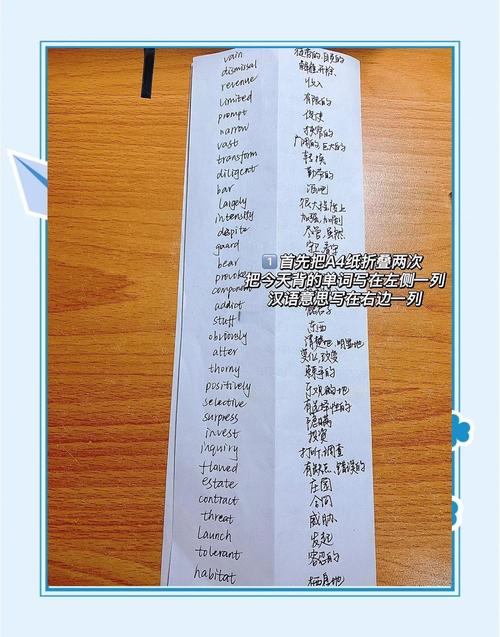 vain 自负的
dismissal 解雇,开除
revenue 收入
limited 有限的
prompt 促使
narrow 狭窄的
vast 广阔的 巨大的
transform 转换
diligent 勤奋的
bar 酒吧
largely 很大程度上
intensity 加强,加剧
despite 尽管,虽然
guard 守卫
bear
provoke
component
addict
stuff 东西
obviously 清楚地,明显地
alter 变化,改变
thorny 棘手的
positively 乐观的/地
selective 有选择性的
surpress 隐瞒
invest 投资
inquiry 打听,调查
flawed 有缺点、错误的
estate 庄园
contract 合同
threat 威胁
launch 发起
tolerant 容忍的
habitat 栖息地
1 首先把A4纸折叠两次
把今天背的单词写在左侧一列
汉语意思写在右边一列